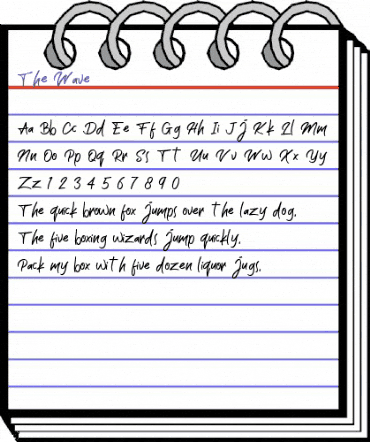 The Wave
Aa Bb Cc Dd Ee Ff Gg Hh Ii Jj Kk Ll Mm
Nn Oo Pp Qq Rr Ss Tt Uu Vv Ww Xx Yy
Zz 1 2 3 4 5 6 7 8 9 0
The quick brown fox jumps over the lazy dog.
The five boxing wizards jump quickly.
Pack my box with five dozen liquor jugs.